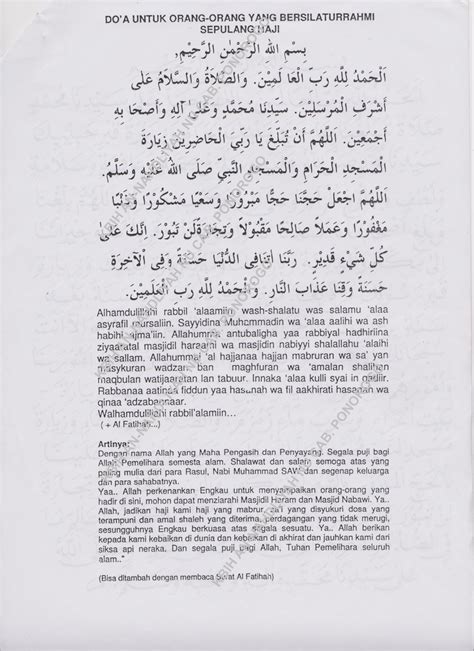 DO'A UNTUK ORANG-ORANG YANG BERSILATURRAHMI
SEPULANG HAJI
بِسْمِ اللهِ الرَّحْمٰنِ الرَّحِيْمِ,
الْحَمْدُ لِلّٰهِ رَبِّ الْعَا لَمِيْنَ. وَالصَّلَاةُ وَالسَّلَامُ عَلَى
أَشْرَفِ الْمُرْسَلِيْنَ. سَيِّدِنَا مُحَمَّدٍ وَعَلَى آلِهِ وَأَصْحَا بِهِ
أَجْمَعِيْنَ. اَللّٰهُمَّ أَنْ تُبَلِّغَ يَا رَبِّيَ الْحَاضِرِيْنَ زِيَارَةَ
الْمَسْجِدِ الْحَرَامِ وَالْمَسْجِدِ النَّبِيِّ صَلَّى اللهُ عَلَيْهِ وَسَلَّمُ.
اَللّٰهُمَّ اجْعَلْ حَجَّنَا حَجًّا مَبْرُوْرًا وَسَعْيًا مَشْكُوْرًا وَذَنْبًا
مَغْفُوْرًا وَعَمَلًا صَالِحًا مَقْبُوْلًا وَتِجَارَةً لَنْ تَبُوْرَ. إِنَّكَ عَلَى
كُلِّ شَيْءٍ قَدِيْرٍ. رَبَّنَا أَتِنَافِى الدُّنْيَا حَسَنَةً وَفِى الْآخِرَةِ
حَسَنَةً وَقِنَا عَذَابَ النَّارِ. وَالْحَمْدُ لِلّٰهِ رَبِّ الْعَلَمِيْنَ.
Alhamdulillahi rabbil 'alaamiin wash-shalatu was salamu 'alaa
asyrafil mursaliin. Sayyidina Muhammadin wa 'alaa aalihi wa ash
habihi ajma'iin. Allahumma antubaligha yaa rabbiyal hadhiriina
ziyaaratal masjidil haraami wa masjidin nabiyyi shalallahu 'alaihi
wa sallam. Allahummaj 'al hajjanaa hajjan mabruran wa sa' yan
masykuran wadzan ban maghfuran wa 'amalan shalihan
maqbulan watijaaratan lan tabuur. Innaka 'alaa kulli syai in qadiir.
Rabbanaa aatinaa fiddun yaa hasanah wa fil aakhirati hasanah wa
qinaa 'adzabannaar.
Walhamdulillahi rabbil'alamiin…
( + Al Fatihah...)
Artinya:
Dengan nama Allah yang Maha Pengasih dan Penyayang. Segala puji bagi
Allah Pemelihara semesta alam. Shalawat dan salam semoga atas yang
paling mulia dari para Rasul, Nabi Muhammad SAW dan segenap keluarga
dan para sahabatnya.
Yaa.. Allah perkenankan Engkau untuk menyampaikan orang-orang yang
hadir di sini, mohon dapat menziarahi Masjidil Haram dan Masjid Nabawi. Ya..
Allah, jadikan haji kami haji yang mabrur, sa'i yang disyukuri dosa yang
terampuni dan amal shaleh yang diterima, perdagangan yang tidak merugi,
sesungguhnya Engkau berkuasa atas segala sesuatu. Ya.. Allah berikan
kepada kami kebaikan di dunia dan kebaikan di akhirat dan jauhkan kami dari
siksa api neraka. Dan segala puji bagi Allah, Tuhan Pemelihara seluruh
alam.."
(Bisa ditambah dengan membaca Surat Al Fatihah)